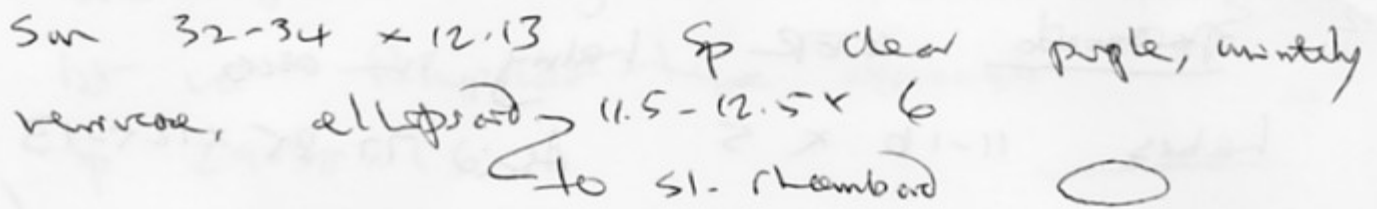 32-34 x 12.13 Sp clear purple, minutely
verrucose, ellipsoid 11.5-12.5 x 6
to sl. rhomboid